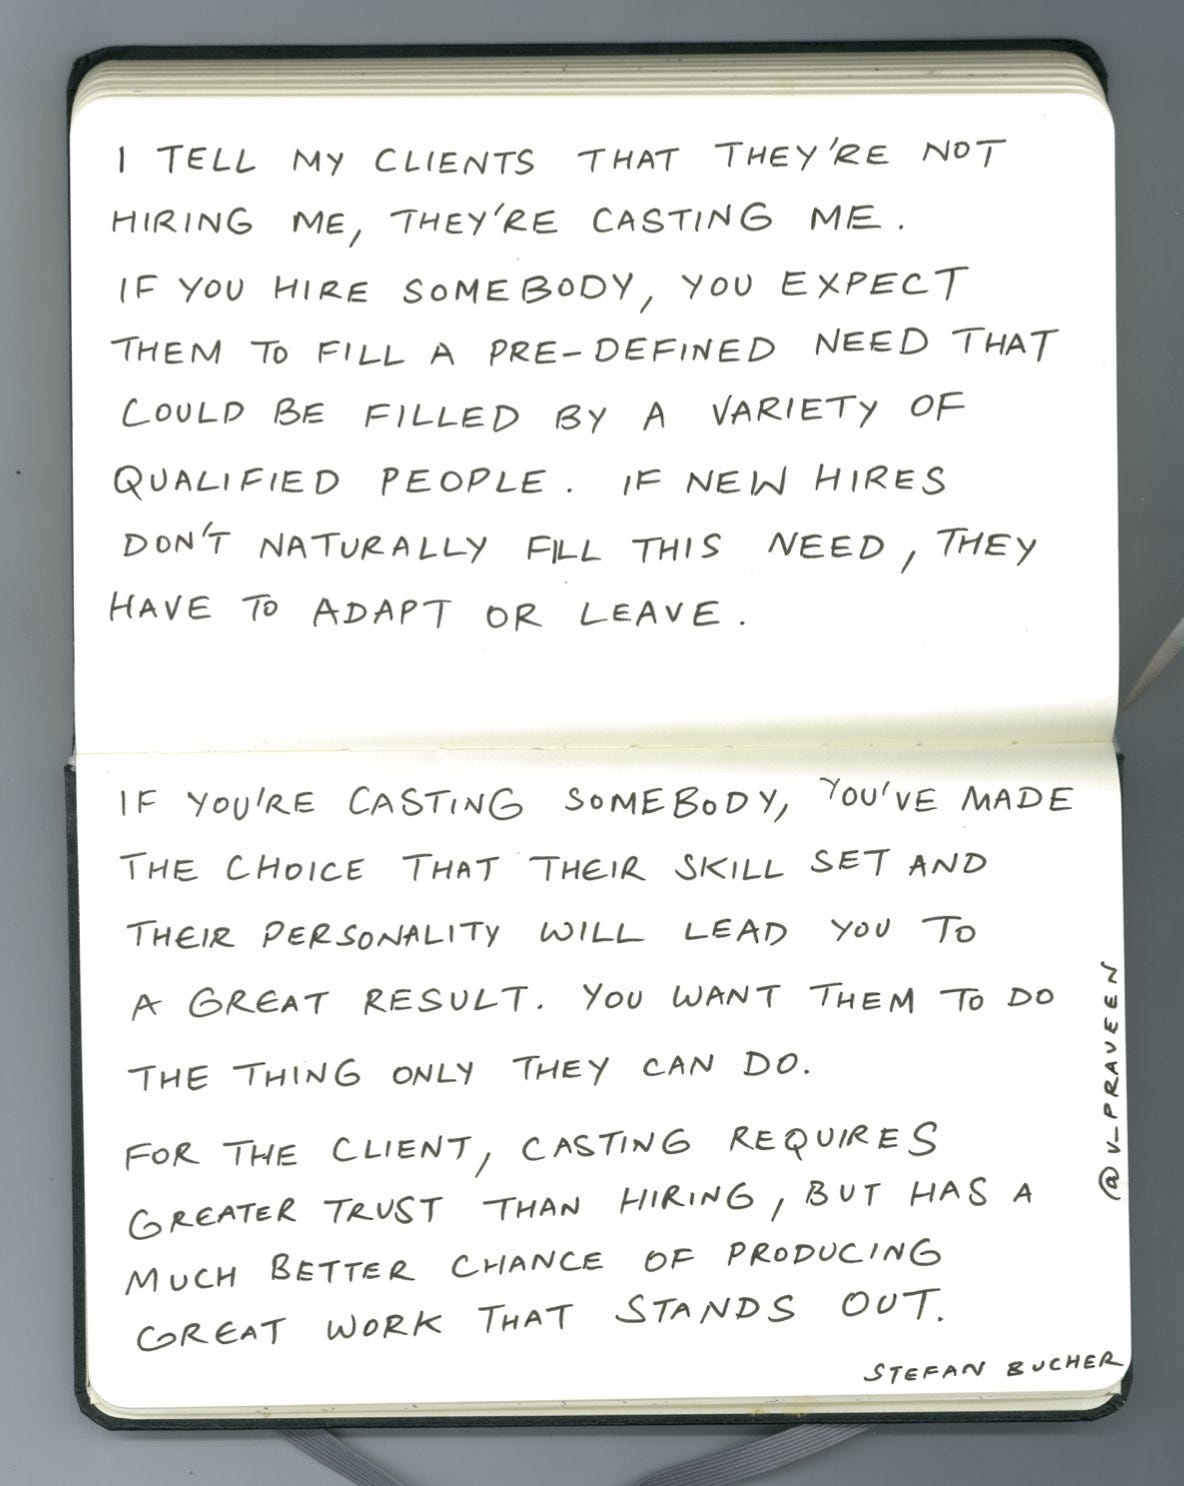 I TELL MY CLIENTS THAT THEY'RE NOT
HIRING ME, THEY'RE CASTING ME.
IF YOU HIRE SOMEBODY, YOU EXPECT
THEM TO FILL A PRE-DEFINED NEED THAT
COULD BE FILLED BY A VARIETY OF
QUALIFIED PEOPLE. IF NEW HIRES
DON'T NATURALLY FILL THIS NEED, THEY
HAVE TO ADAPT OR LEAVE.
IF YOU'RE CASTING SOMEBODY, YOU'VE MADE
THE CHOICE THAT THEIR SKILL SET AND
THEIR PERSONALITY WILL LEAD YOU TO
A GREAT RESULT. YOU WANT THEM TO DO
THE THING ONLY THEY CAN DO.
FOR THE CLIENT, CASTING REQUIRES
GREATER TRUST THAN HIRING, BUT HAS A
MUCH BETTER CHANCE OF PRODUCING
GREAT WORK THAT STANDS OUT.
STEFAN BUCHER
@V_PRAVEEN